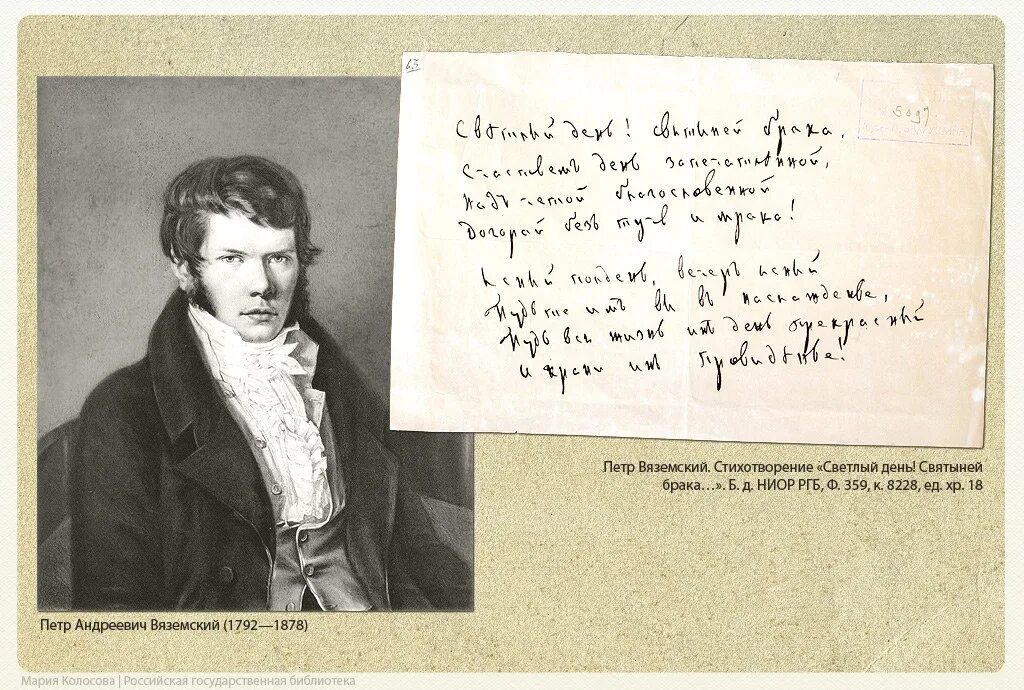 63
5097
Свѣтлый день! святыней брака,
Счастьемъ день запечатлѣнной,
Надъ четой благословенной
Догорай безъ тучъ и мрака!
Ясный полдень, вечеръ ясный
Будь имъ въ наслажденье,
Будь вся жизнь имъ день прекрасный
И храни ихъ Провидѣнье!
Петр Вяземский. Стихотворение «Светлый день! Святыней
брака…». Б. д. НИОР РГБ, Ф. 359, к. 8228, ед. хр. 18
Петр Андреевич Вяземский (1792—1878)
Мария Колосова | Российская государственная библиотека